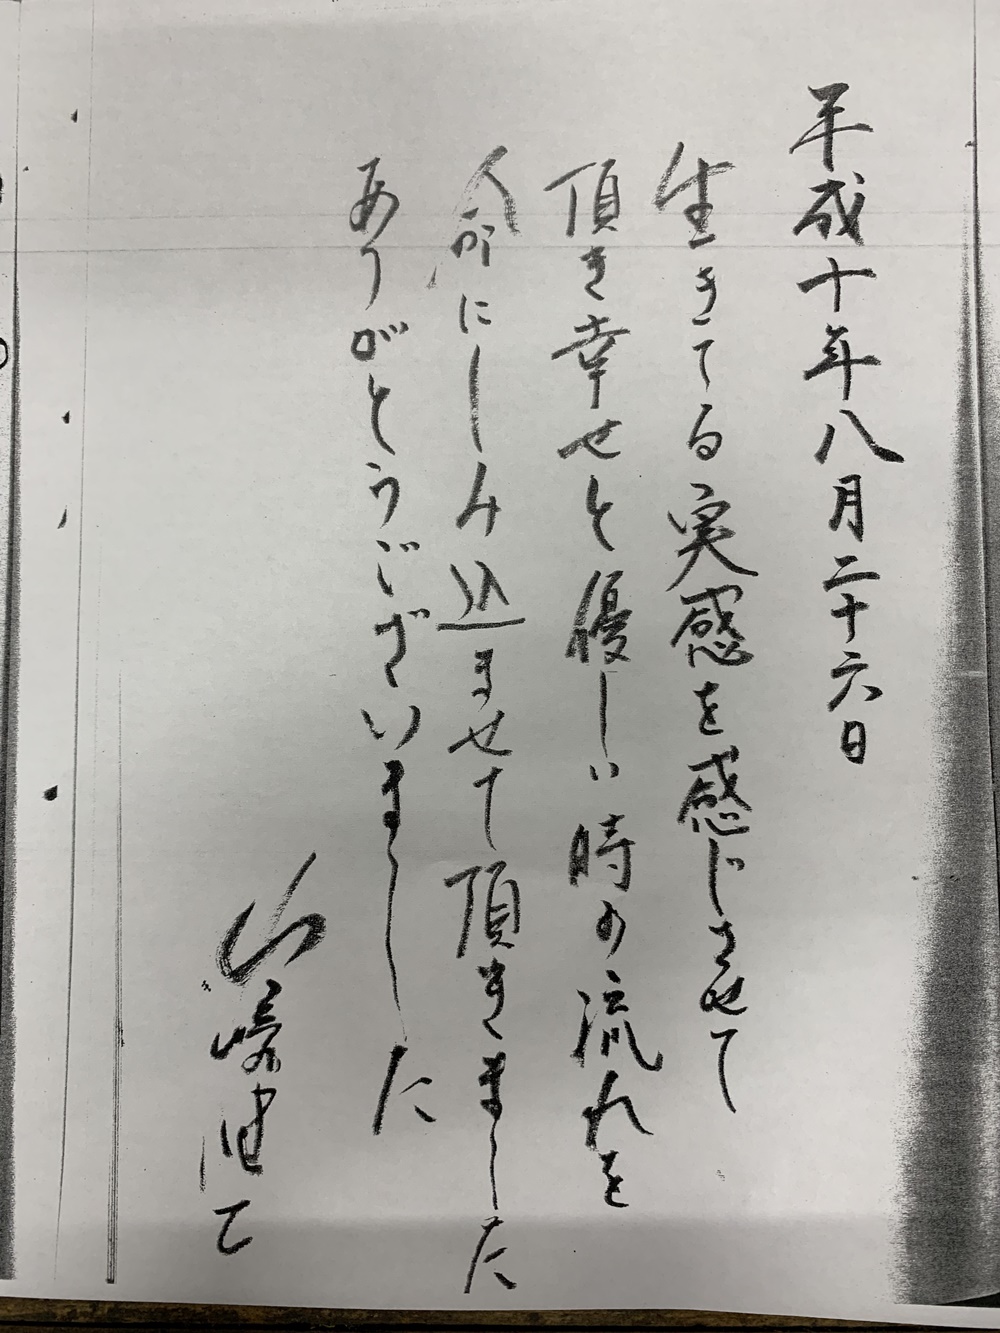 平成十年八月二十六日
生きてる実感を感じさせて
頂き幸せと優しい時の流れを
にしみ込ませて頂きました
ありがとうございました
山崎